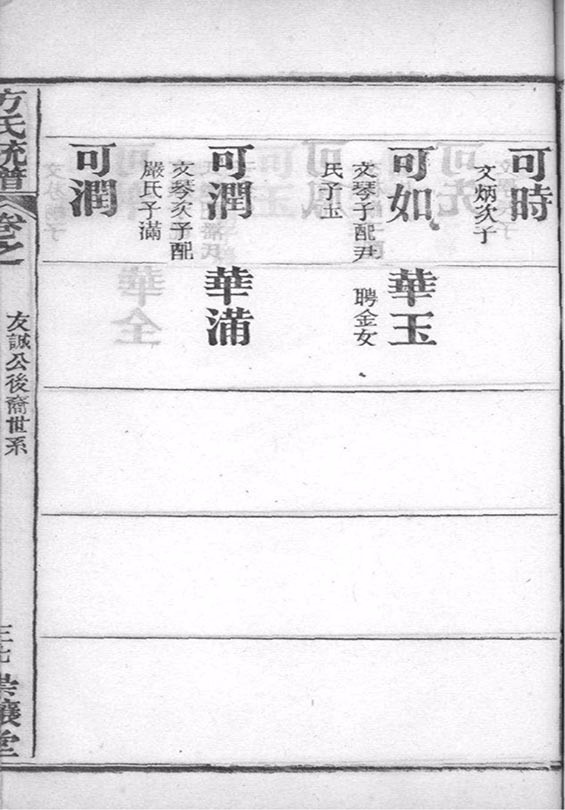 可時
文炳次子
可如
文琴子配尹
氏子玉
華玉
聘金女
可潤
文琴次子配
嚴氏子滿
華滿
可潤
方氏統譜
卷之
友誠公後裔世系